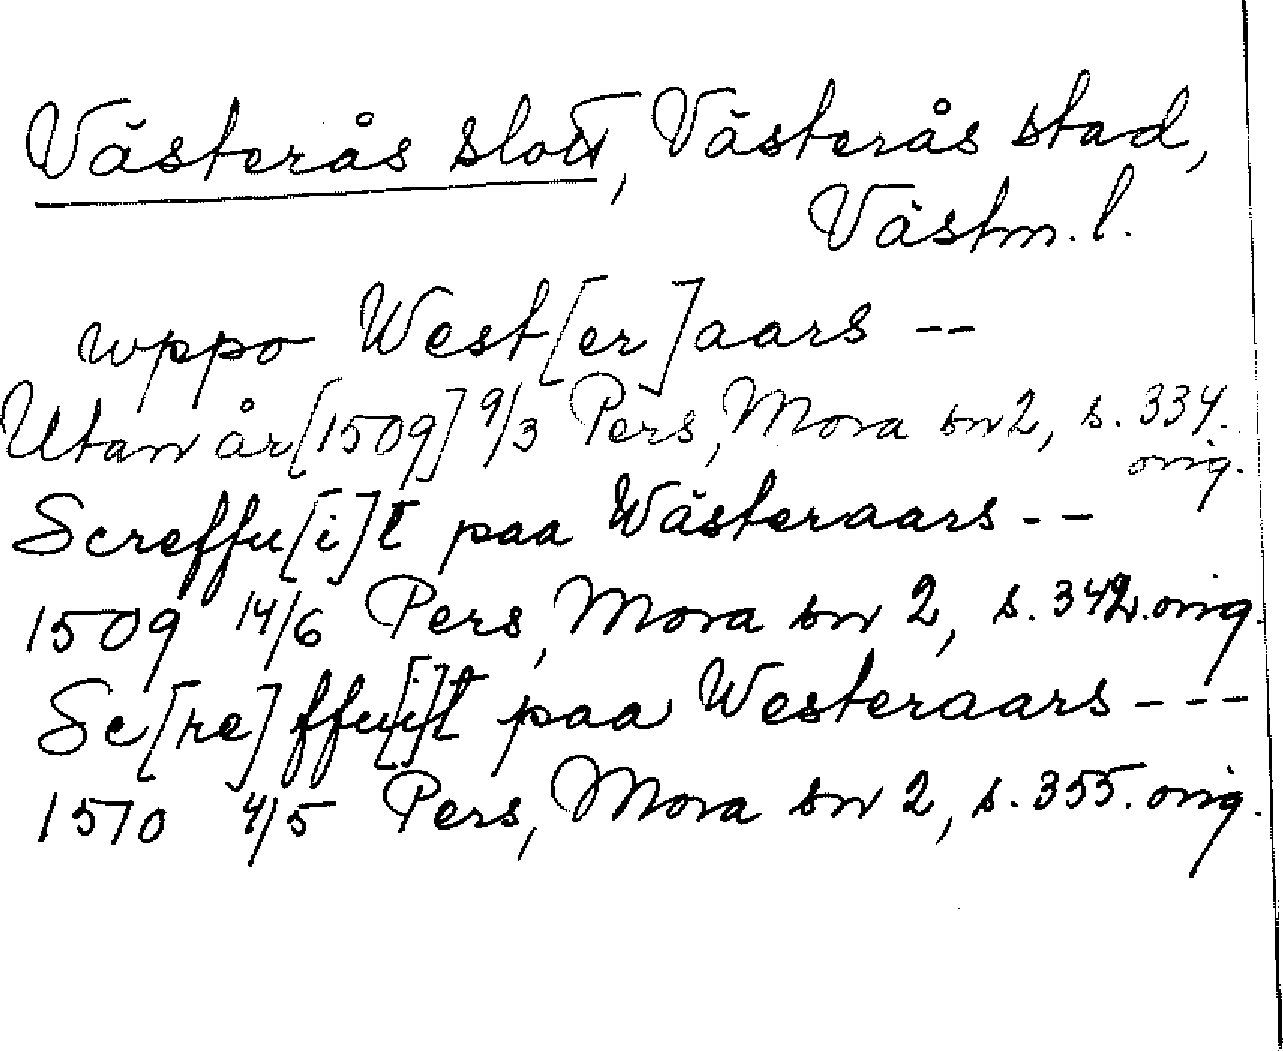 Västerås slott, Västerås stad,
Västm. l.
wppo West[er]aars --
Utan år [1509] 9/3 Pers, Mora sn 2, s. 334.
orig.
Screffu[i]t paa Wästeraars --
1509 14/6 Pers, Mora sn 2, s. 342. orig.
Sc[re]ffu[i]t paa Westeraars ---
1510 4/5 Pers, Mora sn 2, s. 355. orig.